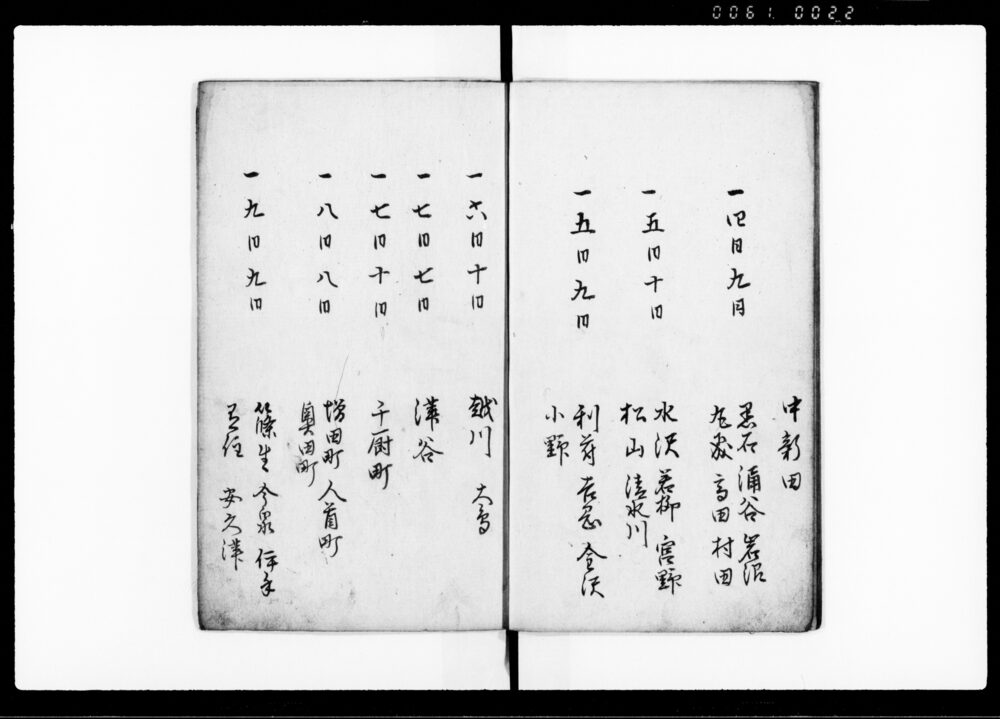 0061 0022
中新田
一 四日九日
黒石 涌谷 岩沼
高田 村田
一 五日十日
水沢 若柳 宮野
松山 清水川
一 五日九日
利府 吉岡 金沢
小野
一 六日十日
越川 大原
一 七日七日
津谷
一 七日十日
千厨町
一 八日八日
増田町 人首町
奥田町
一 九日九日
篠生 今泉 伊手
安久津